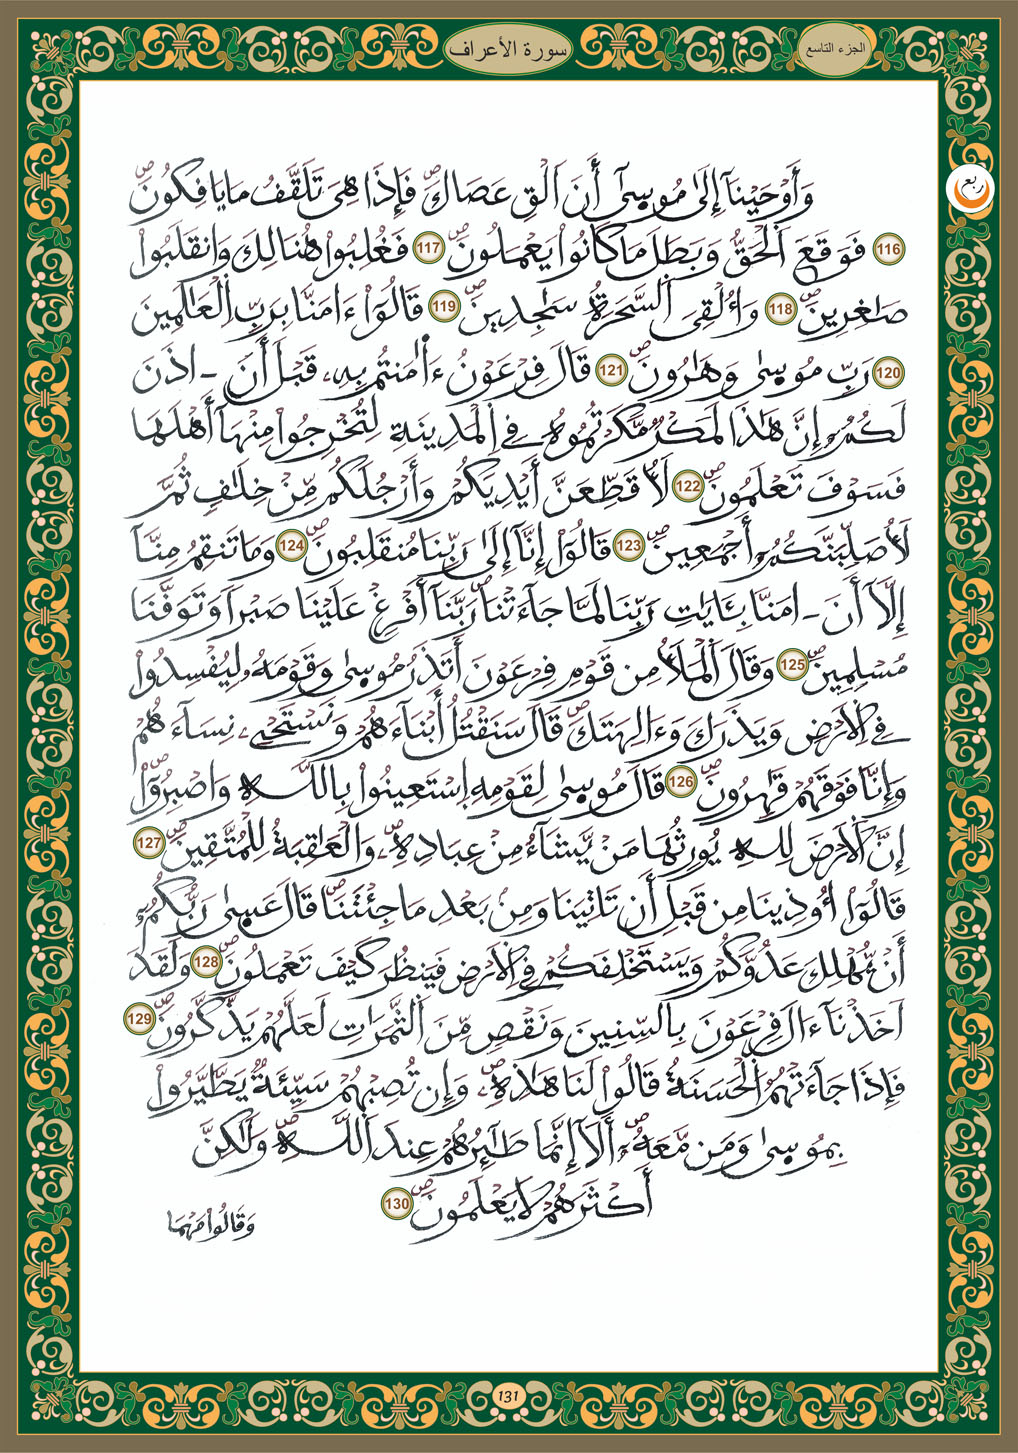 الجزء التاسع
سورة الأعراف
ربع
وَأَوْحَيْنَآ إِلَىٰ مُوسِىٰٓ أَنَ اَلْقِ عَصَاكَۖ فَإِذَا هِيَ تَلَقَّفُ مَا يَافِكُونَۖ
116 فَوَقَعَ اَلْحَقُّ وَبَطَلَ مَا كَانُواْ يَعْمَلُونَۖ 117 فَغُلِبُواْ هُنَالِكَ وَانقَلَبُواْ
صَٰغِرِينَۖ 118 وَأُلْقِيَ اَلسَّحَرَةُ سَٰجِدِينَۖ 119 قَالُوٓاْ ءَامَنَّا بِرَبِّ اِلْعَٰلَمِينَ
120 رَبِّ مُوسِىٰ وَهَٰرُونَۖ 121 قَالَ فِرْعَوْنُ ءَاٰمَنتُم بِهِۦ قَبْلَ أَنَ ـ اٰذَنَ
لَكُمُۥٓ إِنَّ هَٰذَا لَمَكْرٌ مَّكَرْتُمُوهُ فِے اِلْمَدِينَةِ لِتُخْرِجُواْ مِنْهَآ أَهْلَهَا
فَسَوْفَ تَعْلَمُونَۖ 122 لَأُقَطِّعَنَّ أَيْدِيَكُمْ وَأَرْجُلَكُم مِّنْ خِلَٰفٖ ثُمَّ
لَأُصَلِّبَنَّكُمُۥٓ أَجْمَعِينَۖ 123 قَالُوٓاْ إِنَّآ إِلَىٰ رَبِّنَا مُنقَلِبُونَۖ 124 وَمَا تَنقِمُ مِنَّآ
إِلَّآ أَنَ ـ اٰمَنَّا بِـَٔايَٰتِ رَبِّنَا لَمَّا جَآءَتْنَاۖ رَبَّنَآ أَفْرِغْ عَلَيْنَا صَبْراٗ وَتَوَفَّنَا
مُسْلِمِينَۖ 125 وَقَالَ اَلْمَلَأُ مِن قَوْمِ فِرْعَوْنَ أَتَذَرُ مُوسِىٰ وَقَوْمَهُۥ لِيُفْسِدُواْ
فِے اِلَارْضِ وَيَذَرَكَ وَءَالِهَتَكَۖ قَالَ سَنَقْتُلُ أَبْنَآءَهُمْ وَنَسْتَحْيِے نِسَآءَهُمْ
وَإِنَّا فَوْقَهُمْ قَٰهِرُونَۖ 126 قَالَ مُوسِىٰ لِقَوْمِهِ اِسْتَعِينُواْ بِاللَّهِ وَاصْبِرُوٓاْ
إِنَّ اَلَارْضَ لِلهِ يُورِثُهَا مَنْ يَّشَآءُ مِنْ عِبَادِهِۦۖ وَالْعَٰقِبَةُ لِلْمُتَّقِينَۖ 127
قَالُوٓاْ أُوذِينَا مِن قَبْلِ أَن تَاتِيَنَا وَمِنۢ بَعْدِ مَا جِئْتَنَاۖ قَالَ عَسِىٰ رَبُّكُمُۥٓ
أَنْ يُّهْلِكَ عَدُوَّكُمْ وَيَسْتَخْلِفَكُمْ فِے اِلَارْضِ فَيَنظُرَ كَيْفَ تَعْمَلُونَۖ 128 وَلَقَدَ
اَخَذْنَآ ءَالَ فِرْعَوْنَ بِالسِّنِينَ وَنَقْصٖ مِّنَ اَلثَّمَرَٰتِ لَعَلَّهُمْ يَذَّكَّرُونَۖ 129
فَإِذَا جَآءَتْهُمُ اُلْحَسَنَةُ قَالُواْ لَنَا هَٰذِهِۦۖ وَإِن تُصِبْهُمْ سَيِّئَةٌ يَطَّيَّرُواْ
بِمُوسِىٰ وَمَن مَّعَهُۥٓۖ أَلَآ إِنَّمَا طَٰٓئِرُهُمْ عِندَ اَللَّهِۖ وَلَٰكِنَّ
أَكْثَرَهُمْ لَا يَعْلَمُونَۖ 130
وَقَالُواْ مَهْمَا
131